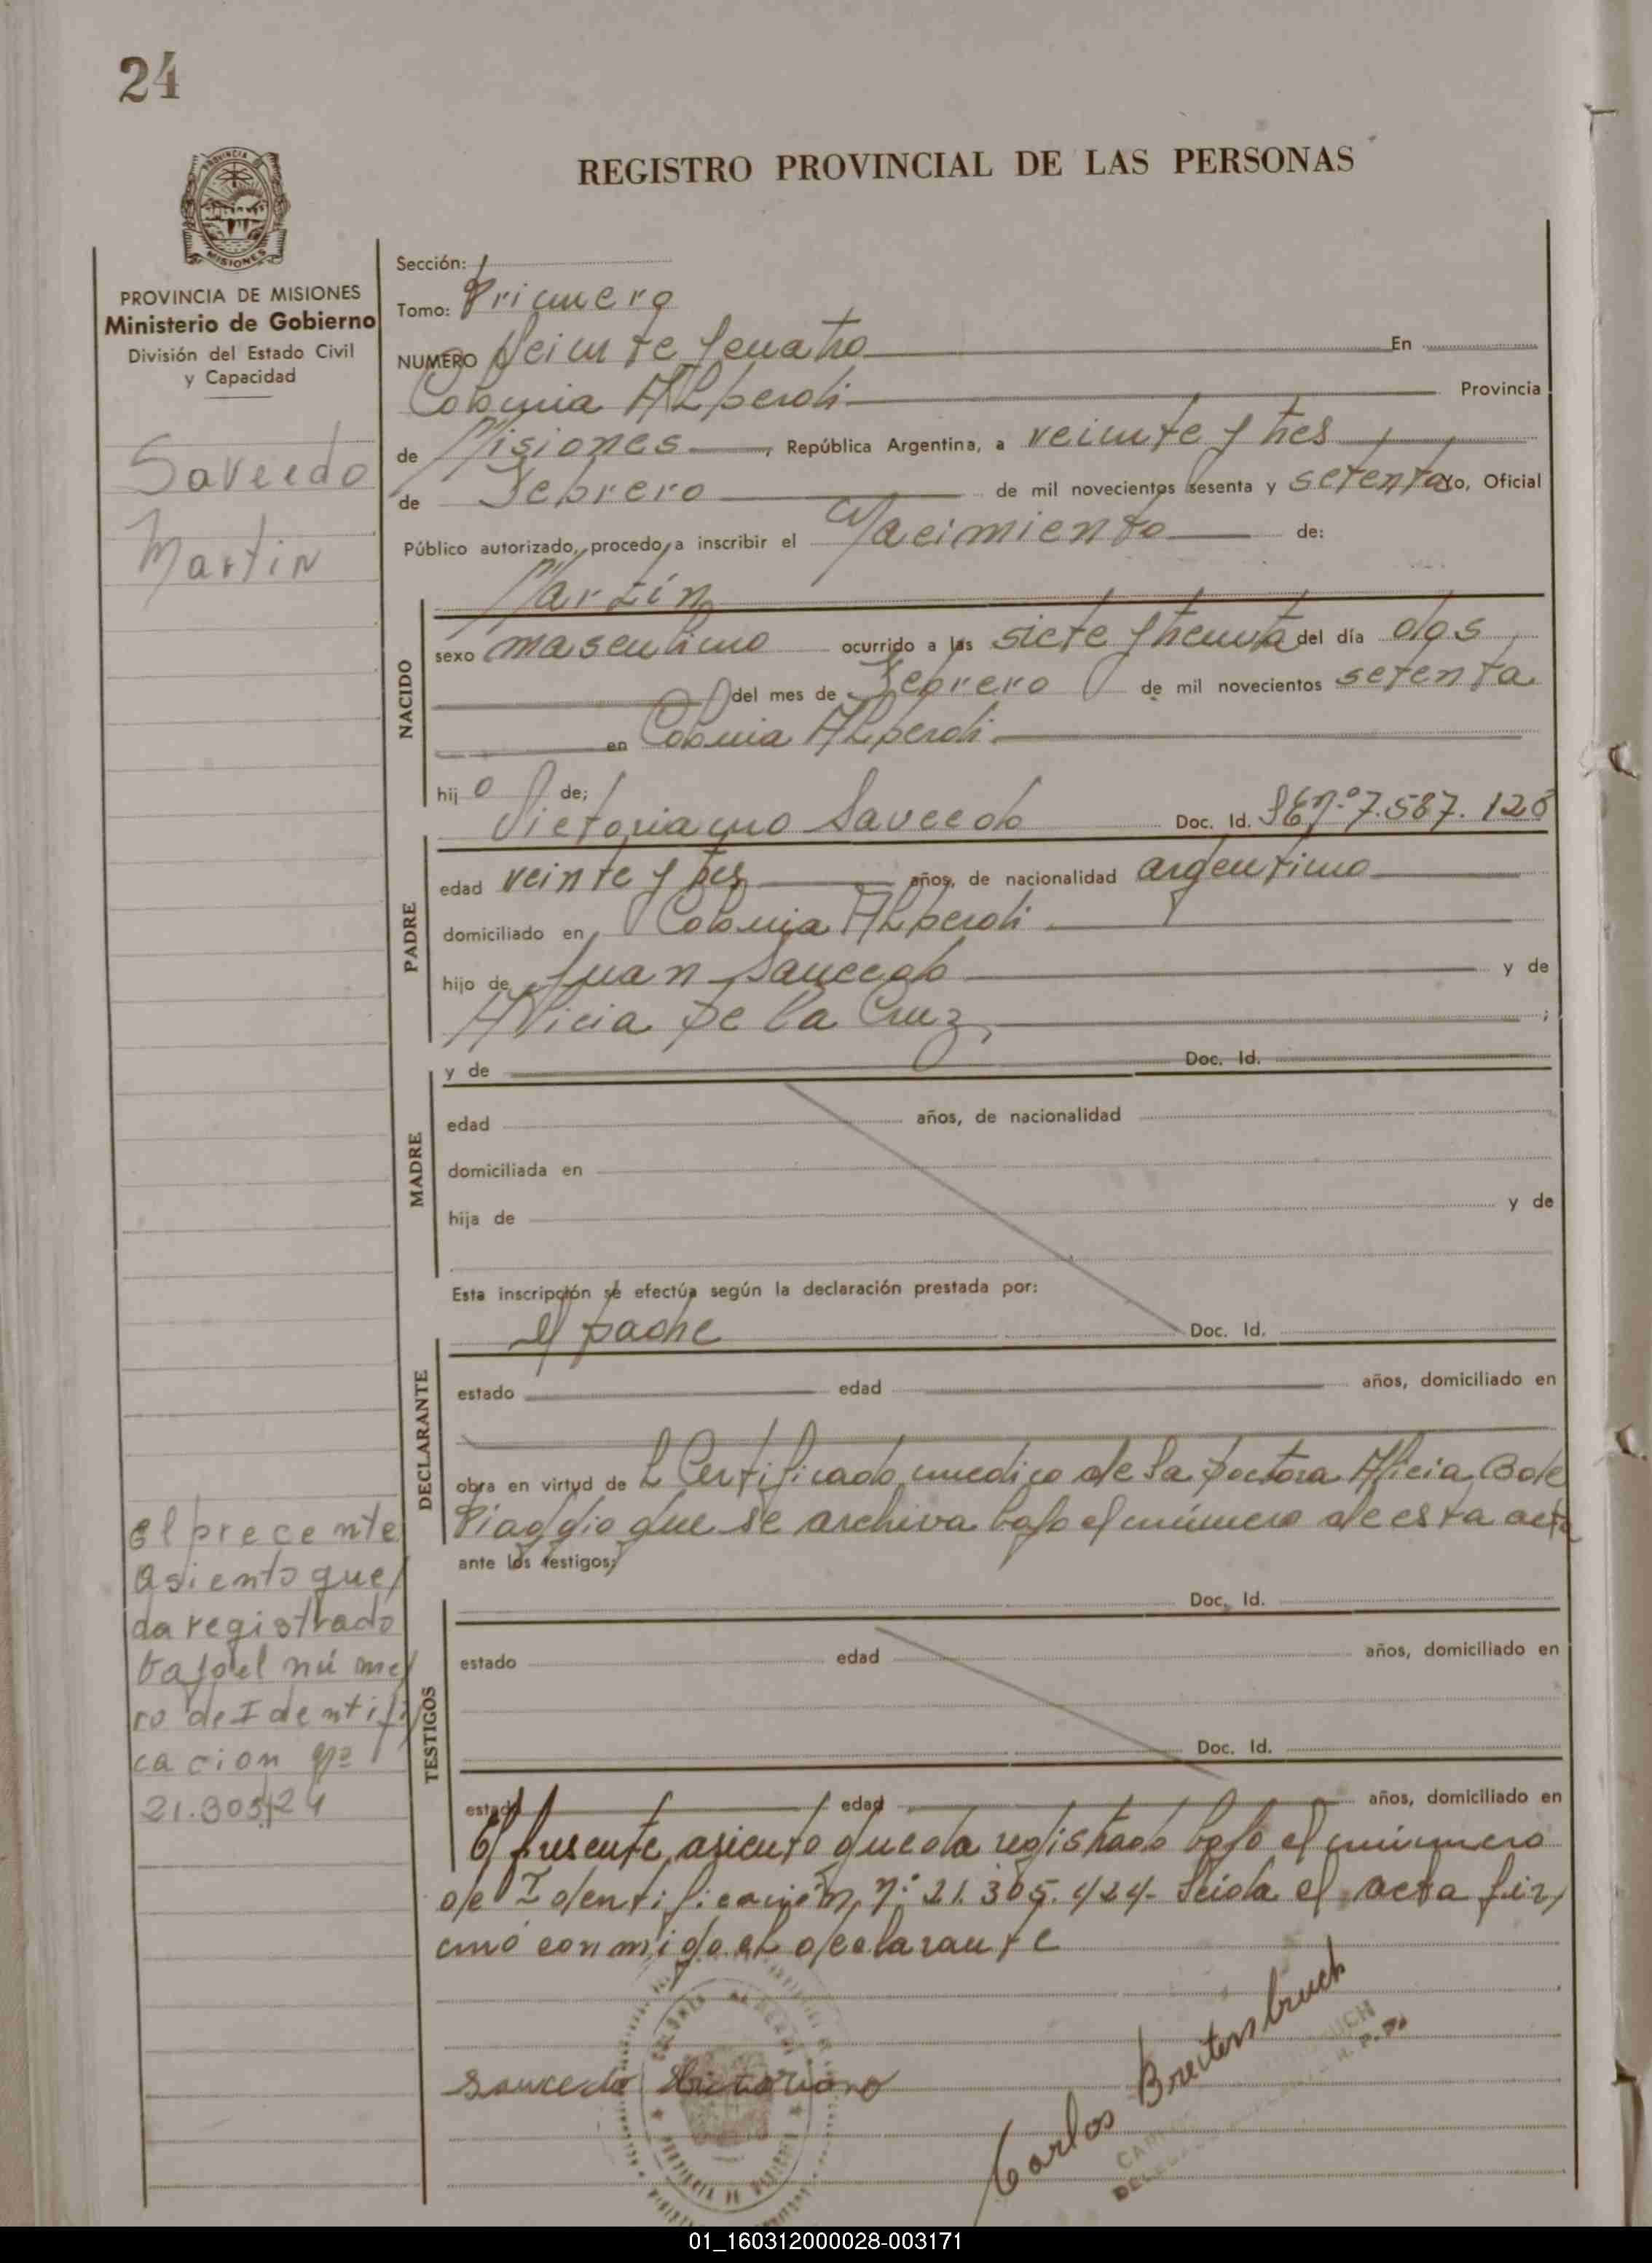 24
REGISTRO PROVINCIAL DE LAS PERSONAS
PROVINCIA
MISIONES
PROVINCIA DE MISIONES
Ministerio de Gobierno
División del Estado Civil
y Capacidad
Savcedo
Martin
Sección: 1
Tomo: Primero
NUMERO Veinte y cuatro En
Colonia ALberdi Provincia
de Misiones, República Argentina, a veinte y tres
de Febrero de mil novecientos sesenta y setenta Yo, Oficial
Público autorizado, procedo a inscribir el Nacimiento de:
Martín
NACIDO
sexo masculino ocurrido a las siete y treinta del día dos
del mes de Febrero de mil novecientos setenta
en Colonia ALberdi.
hij o de;
Victoriano Saucedo Doc. Id. Nº 7.587.128
PADRE
edad veinte y tres años, de nacionalidad argentino
domiciliado en Colonia ALberdi
hijo de Juan Saucedo y de
Alicia De la Cruz, ;
y de Doc. Id.
MADRE
edad años, de nacionalidad
domiciliada en
hija de y de
Esta inscripción se efectúa según la declaración prestada por:
el padre Doc. Id.
DECLARANTE
estado edad años, domiciliado en
obra en virtud de L Certificado medico de la Doctora Alicia B de
Piaggio que se archiva bajo el número de esta acta
ante los testigos;
TESTIGOS
Doc. Id.
estado edad años, domiciliado en
Doc. Id.
estado edad años, domiciliado en
El presente asiento queda registrado bajo el número
de Identificación, nº 21.305.424- Leida el acta fir,
mó conmigo el declarante
El precente
asiento que/
da registrado
bajo el núme/
ro de Identifi
cacion nº
21.305424
saucedo Victoriano
Carlos Breitenbruch
01_160312000028-003171